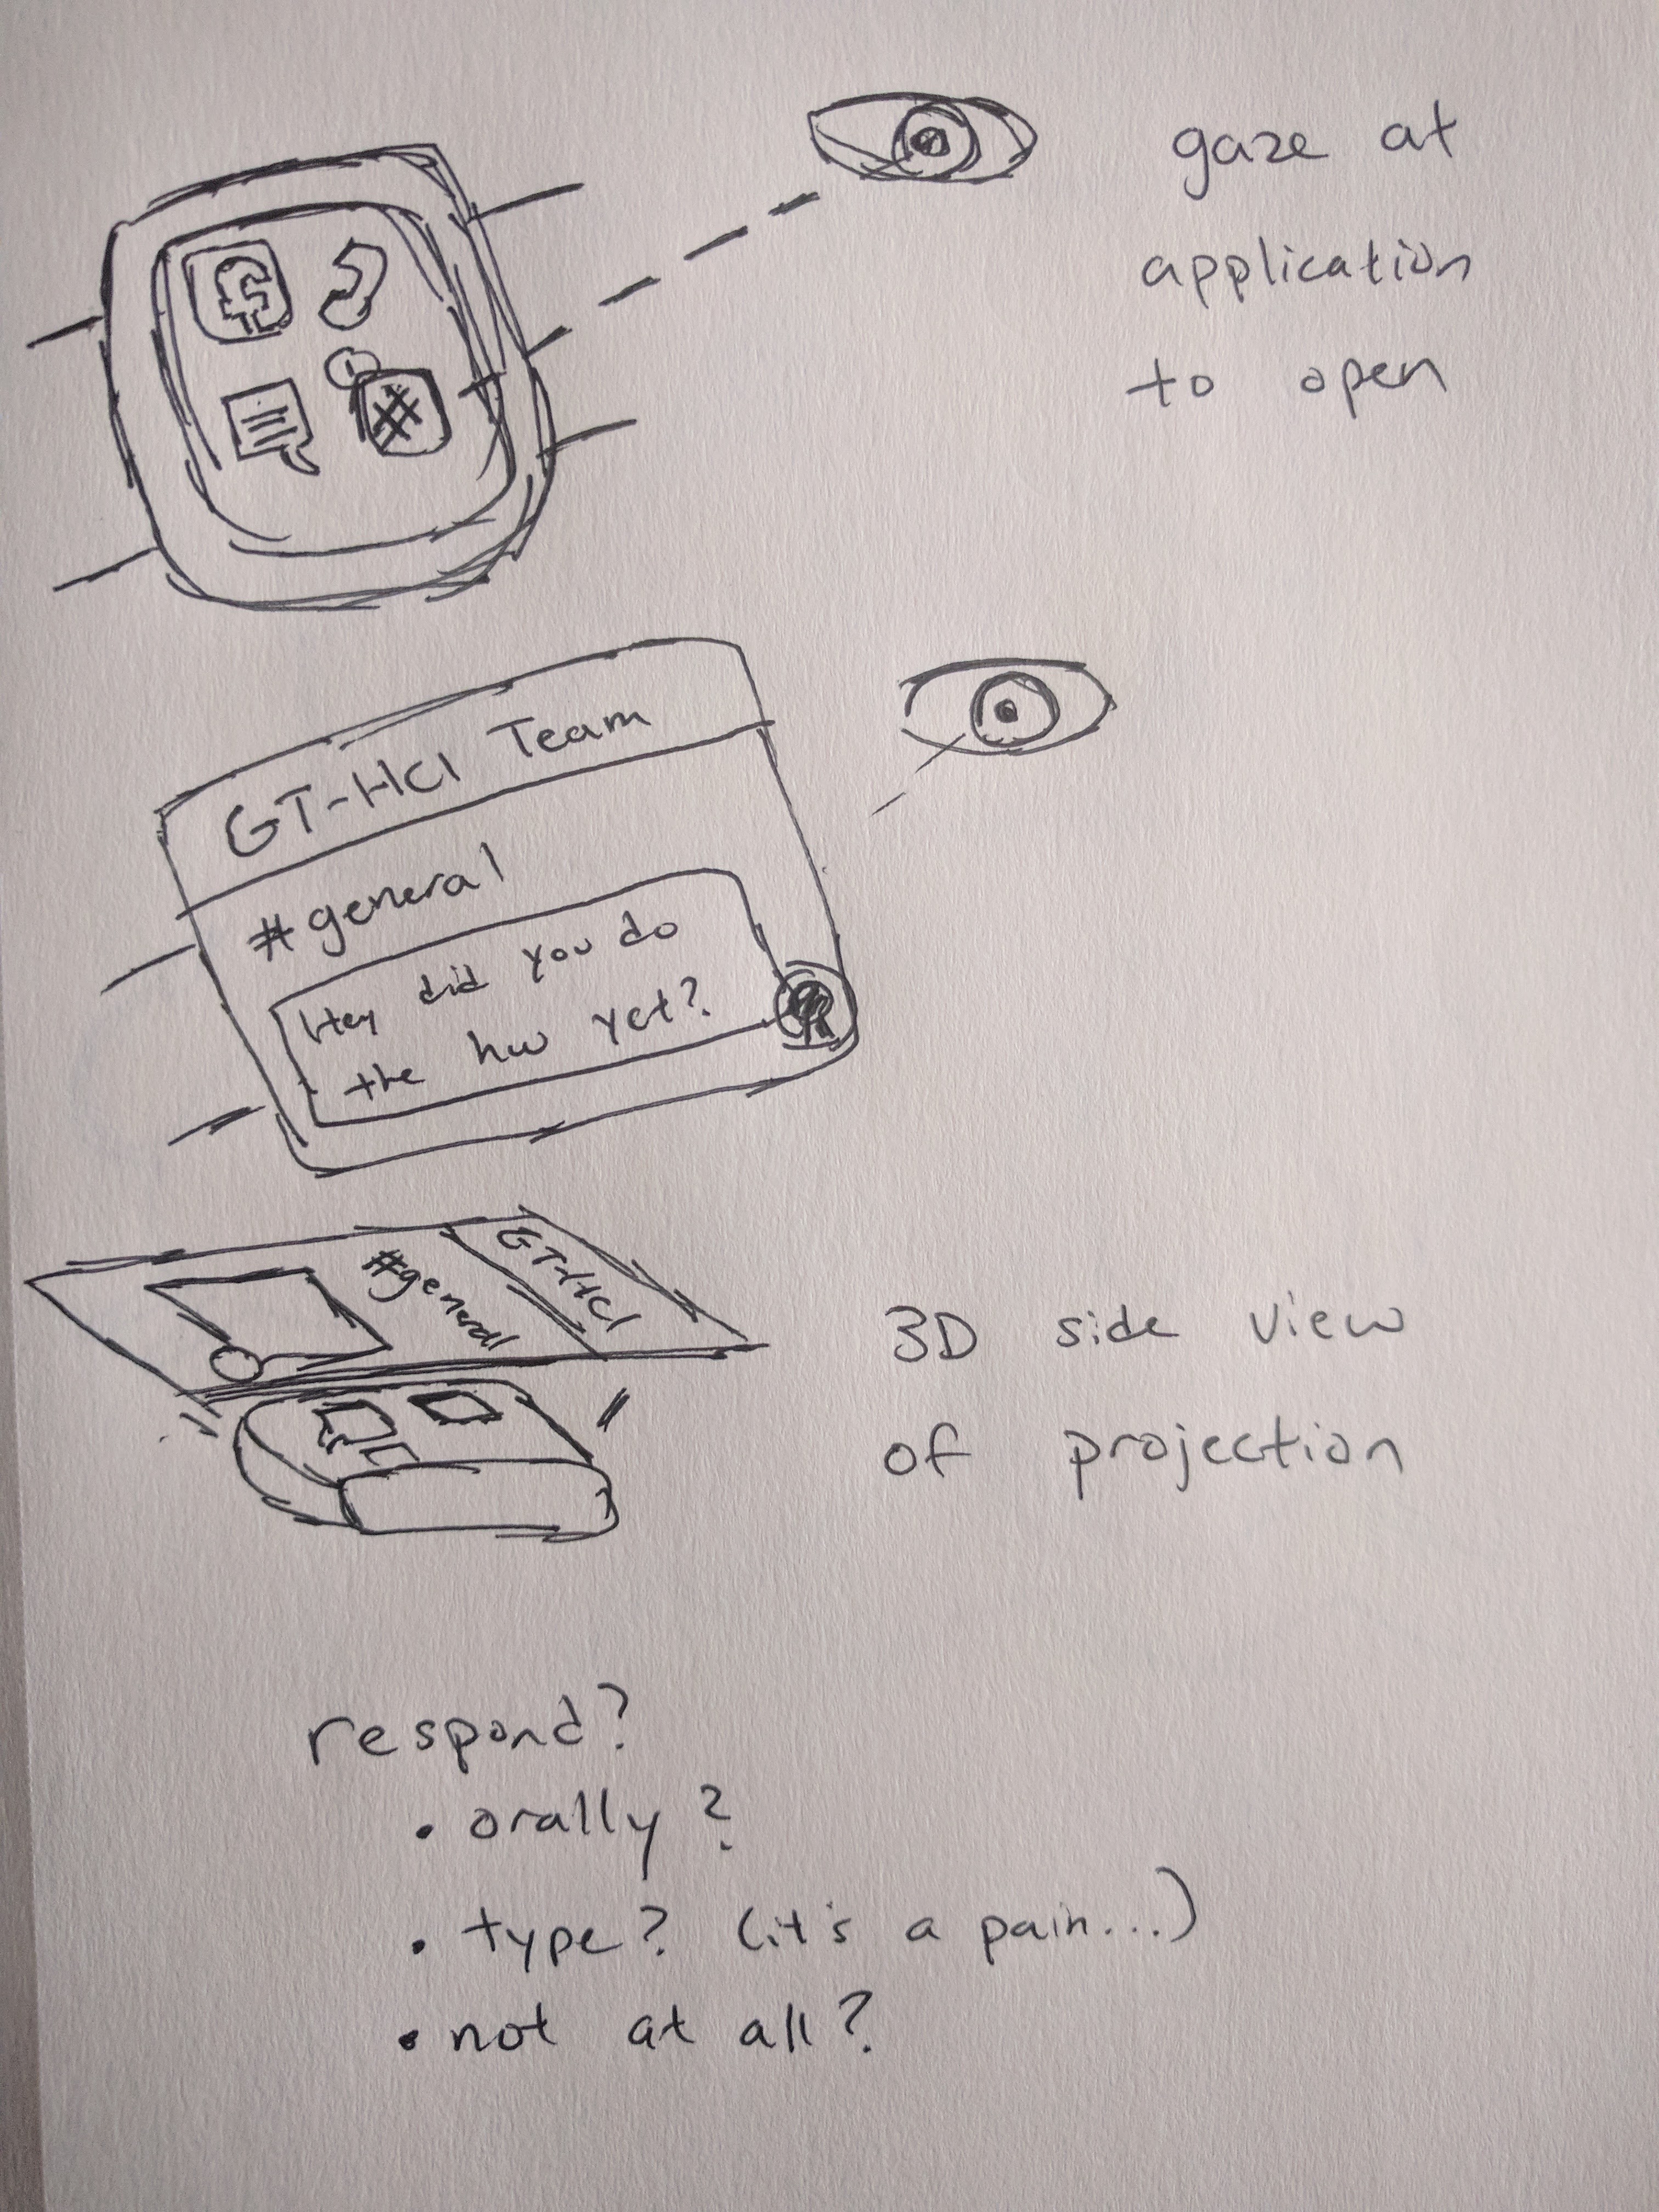 gaze at
application
to open
f
#
GT-HCI Team
#general
Hey did you do
the hw yet?
GT-HCI
#general
3D side view
of projection
respond?
• orally?
• type? (it's a pain...)
• not at all?